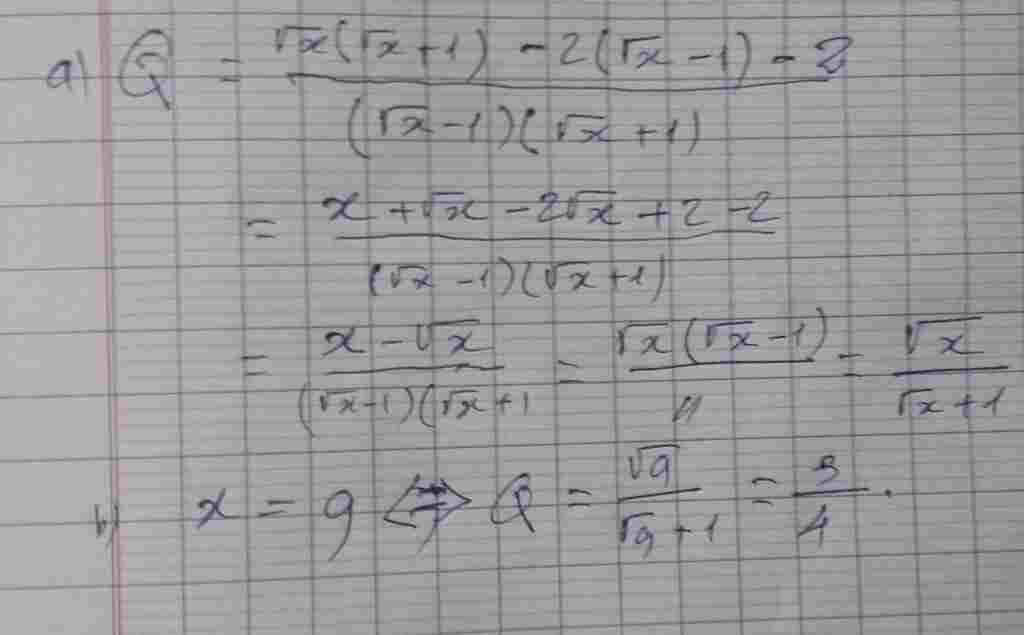 a) Q = (√x(√x+1) - 2(√x-1) - 2) / ((√x-1)(√x+1))
= (x+√x-2√x+2-2) / ((√x-1)(√x+1))
= (x-√x) / ((√x-1)(√x+1) = (√x(√x-1)) / 〃 = √x / (√x+1)
b) x = 9 ⇔ Q = √9 / (√9+1) = 3/4.